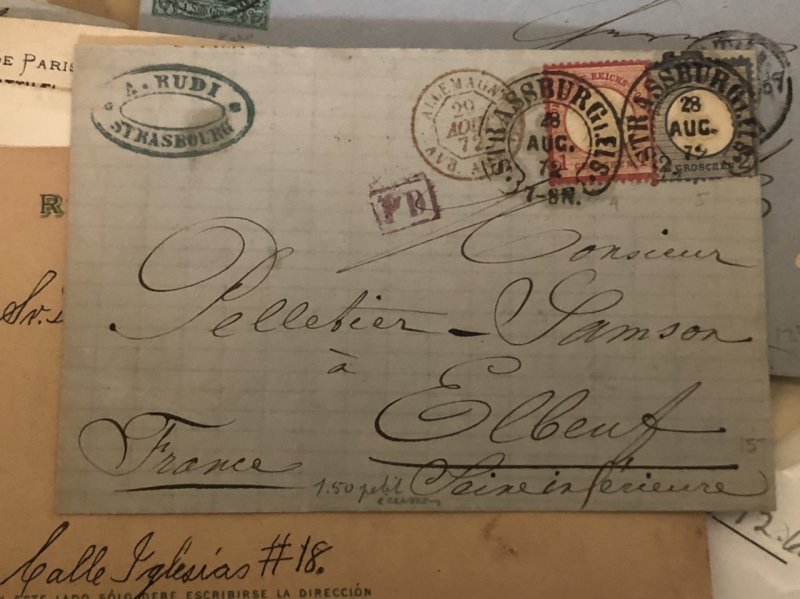 DE PARIS
A. RUDI
STRASBOURG
ALLEMAGNE
29
AOUT
72
STRASSBURG I. ELS.
28
AUG.
72
7-8N.
1
GROSCHEN
STRASSBURG I. ELS.
28
AUG.
72
2 GROSCHEN 2
PD
4
5
Monsieur
Pelletier-Samson
à
Elbeuf
France
Seine inférieure
1.50 petit
15
R
Sr.
Calle Iglesias #18.
EN ESTE LADO SÓLO DEBE ESCRIBIRSE LA DIRECCIÓN